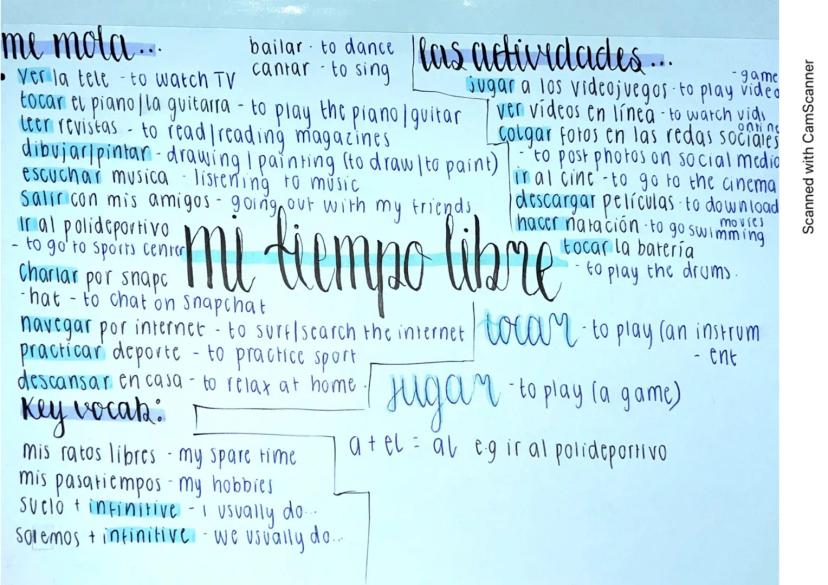 me mola...
• ver la tele - to watch TV
tocar el piano/la guitarra - to play the piano/guitar
leer revistas - to read/reading magazines
dibujar/pintar - drawing/painting (to draw/to paint)
escuchar musica - listening to music
salir con mis amigos - going out with my friends
ir al polideportivo
- to go to sports center
charlar por snapc
-hat - to chat on snapchat
navegar por internet - to surf/search the internet
practicar deporte - to practice sport
descansar en casa - to relax at home.
bailar - to dance
cantar - to sing
las actividades...
jugar a los videojuegos - to play video
-game
ver videos en línea - to watch vids
online
colgar fotos en las redas sociales
- to post photos on social media
ir al cine - to go to the cinema
descargar películas - to download
movies
hacer natación - to go swimming
tocar la batería
- to play the drums.
mi tiempo libre
tocar - to play (an instrum
- ent
jugar - to play (a game)
a + el = al e.g ir al polideportivo
Key vocab:
mis ratos libres - my spare time
mis pasatiempos - my hobbies
suelo + infinitive - I usually do...
solemos + infinitive - we usually do...
Scanned with CamScanner